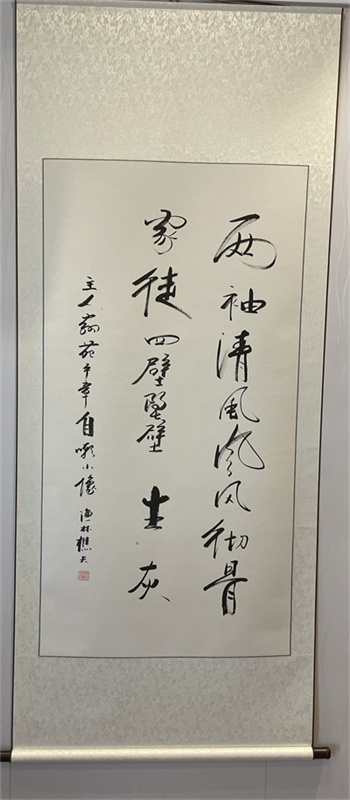 两袖清风风风彻骨
家徒四壁壁壁生灰
主人翰苑平章自嘲小像 渔林樵夫